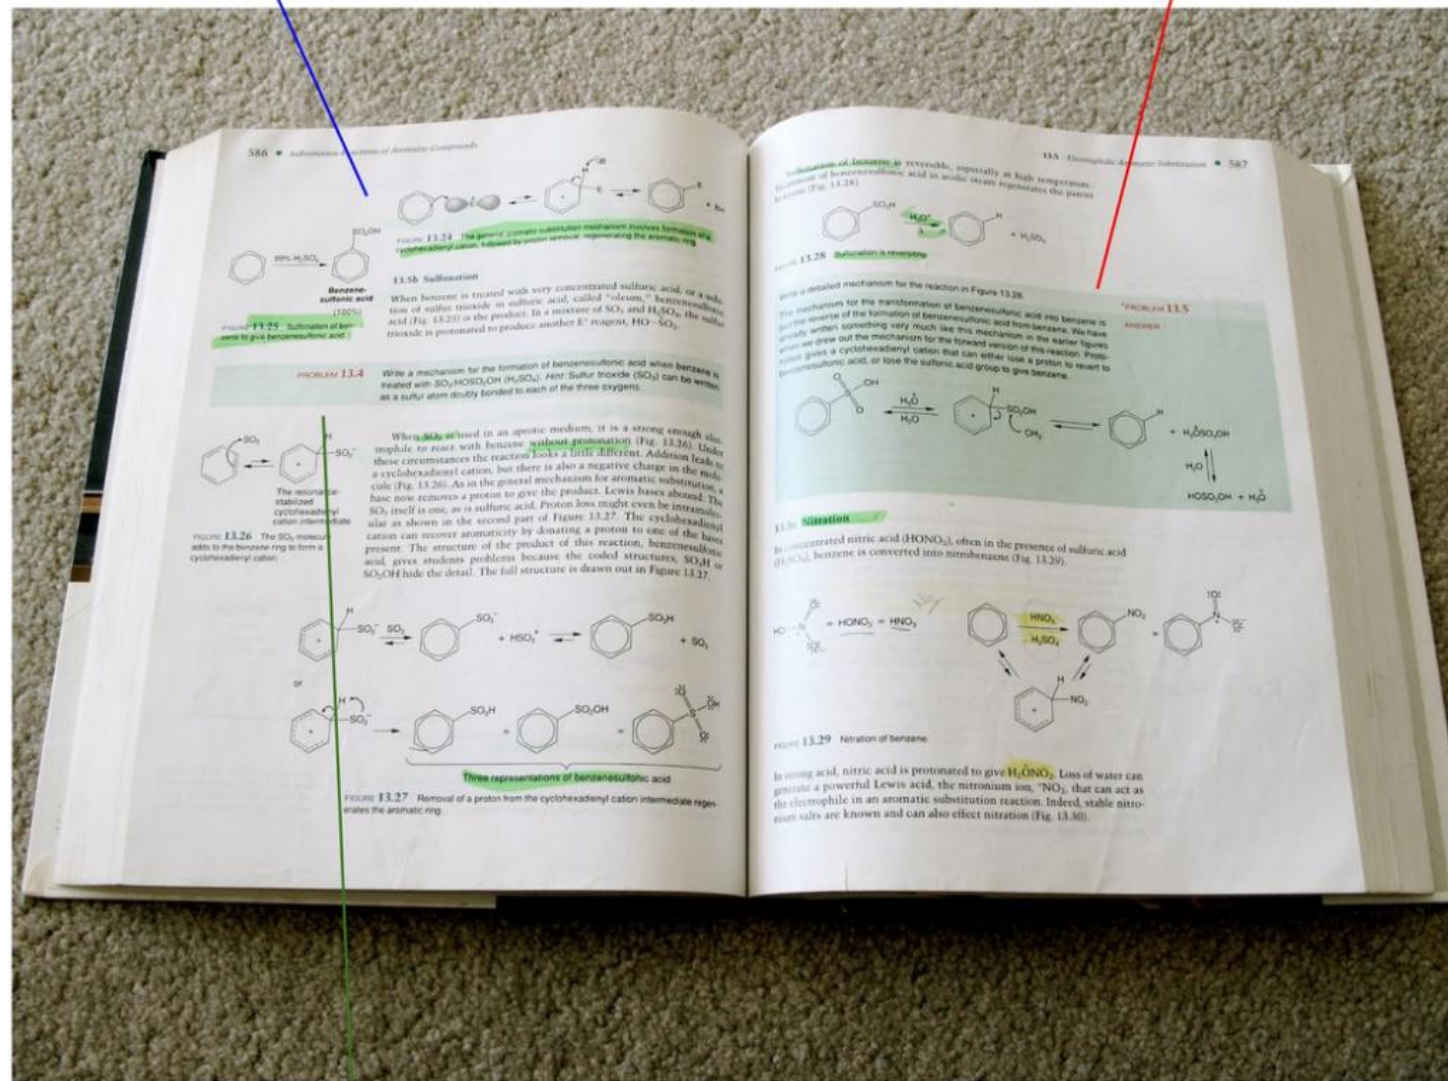 586 • Substitution Reactions of Aromatic Compounds
E
FIGURE 13.24 The general aromatic substitution mechanism involves formation of a
cyclohexadienyl cation, followed by proton removal, regenerating the aromatic ring.
SO₂OH
99% H₂SO₄
Benzene-
sulfonic acid
(100%)
FIGURE 13.25 Sulfonation of ben-
zene to give benzenesulfonic acid.
13.5b Sulfonation
When benzene is treated with very concentrated sulfuric acid, or a solu-
tion of sulfur trioxide in sulfuric acid, called "oleum," benzenesulfonic
acid (Fig. 13.25) is the product. In a mixture of SO₃ and H₂SO₄, the sulfur
trioxide is protonated to produce another E⁺ reagent, HO–SO₂.
PROBLEM 13.4
Write a mechanism for the formation of benzenesulfonic acid when benzene is
treated with SO₃/HOSO₂OH (H₂SO₄). Hint: Sulfur trioxide (SO₃) can be written
as a sulfur atom doubly bonded to each of the three oxygens.
SO₃
H
SO₃⁻
The resonance-
stabilized
cyclohexadienyl
cation intermediate
FIGURE 13.26 The SO₃ molecule
adds to the benzene ring to form a
cyclohexadienyl cation.
When SO₃ is used in an aprotic medium, it is a strong enough elec-
trophile to react with benzene without protonation (Fig. 13.26). Under
these circumstances the reaction looks a little different. Addition leads to
a cyclohexadienyl cation, but there is also a negative charge in the mole-
cule (Fig. 13.26). As in the general mechanism for aromatic substitution, a
base now removes a proton to give the product. Lewis bases abound: The
SO₃ itself is one, as is sulfuric acid. Proton loss might even be intramolec-
ular as shown in the second part of Figure 13.27. The cyclohexadienyl
cation can recover aromaticity by donating a proton to one of the bases
present. The structure of the product of this reaction, benzenesulfonic
acid, gives students problems because the coded structures, SO₃H or
SO₂OH hide the detail. The full structure is drawn out in Figure 13.27.
H
SO₃⁻ SO₃ SO₃⁻ + HSO₃⁺ SO₃H + SO₃
or
H
SO₃⁻ SO₃H = SO₂OH = S
Three representations of benzenesulfonic acid
FIGURE 13.27 Removal of a proton from the cyclohexadienyl cation intermediate regen-
erates the aromatic ring.
13.5 Electrophilic Aromatic Substitution • 587
Sulfonation of benzene is reversible, especially at high temperature.
Treatment of benzenesulfonic acid in acidic steam regenerates the parent
benzene (Fig. 13.28).
SO₃H H₃O⁺ H + H₂SO₄
FIGURE 13.28 Sulfonation is reversible.
Write a detailed mechanism for the reaction in Figure 13.28.
*PROBLEM 13.5
The mechanism for the transformation of benzenesulfonic acid into benzene is
just the reverse of the formation of benzenesulfonic acid from benzene. We have
already written something very much like this mechanism in the earlier figures
when we drew out the mechanism for the forward version of this reaction. Proto-
nation gives a cyclohexadienyl cation that can either lose a proton to revert to
benzenesulfonic acid, or lose the sulfonic acid group to give benzene.
ANSWER
O
S OH
O
H₃O⁺
H₂O
H
SO₂OH
OH₂
H
+ H₂OSO₂OH
H₂O
HOSO₂OH + H₃O⁺
13.5c Nitration
In concentrated nitric acid (HONO₂), often in the presence of sulfuric acid
(H₂SO₄), benzene is converted into nitrobenzene (Fig. 13.29).
HO N = HONO₂ = HNO₃
HNO₃
H₂SO₄
NO₂
= N
H
NO₂
FIGURE 13.29 Nitration of benzene.
In strong acid, nitric acid is protonated to give H₂ONO₂. Loss of water can
generate a powerful Lewis acid, the nitronium ion, ⁺NO₂, that can act as
the electrophile in an aromatic substitution reaction. Indeed, stable nitro-
nium salts are known and can also effect nitration (Fig. 13.30).